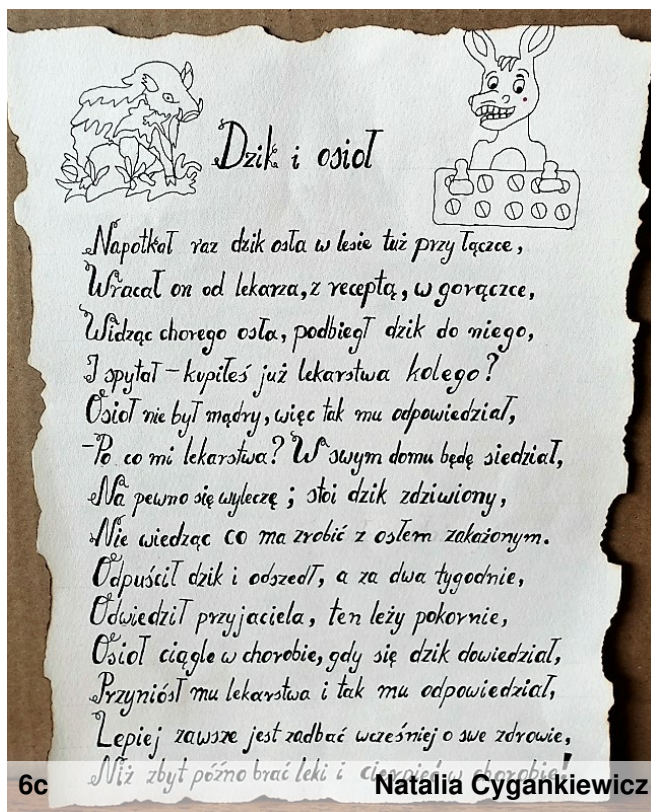 Dzik i osioł
Napotkał raz dzik osła w lesie tuż przy łączce,
Wracał on od lekarza, z receptą, w gorączce,
Widząc chorego osła, podbiegł dzik do niego,
I spytał – kupiłeś już lekarstwa kolego?
Osioł nie był mądry, więc tak mu odpowiedział,
-Po co mi lekarstwa? W swym domu będę siedział,
Na pewno się wyleczę ; stoi dzik zdziwiony,
Nie wiedząc co ma zrobić z osłem zakażonym.
Odpuścił dzik i odszedł, a za dwa tygodnie,
Odwiedził przyjaciela, ten leży pokornie,
Osioł ciągle w chorobie, gdy się dzik dowiedział,
Przyniósł mu lekarstwa i tak mu odpowiedział,
Lepiej zawsze jest zadbać wcześniej o swe zdrowie,
Niż zbyt późno brać leki i cierpieć w chorobie!
6c Natalia Cygankiewicz